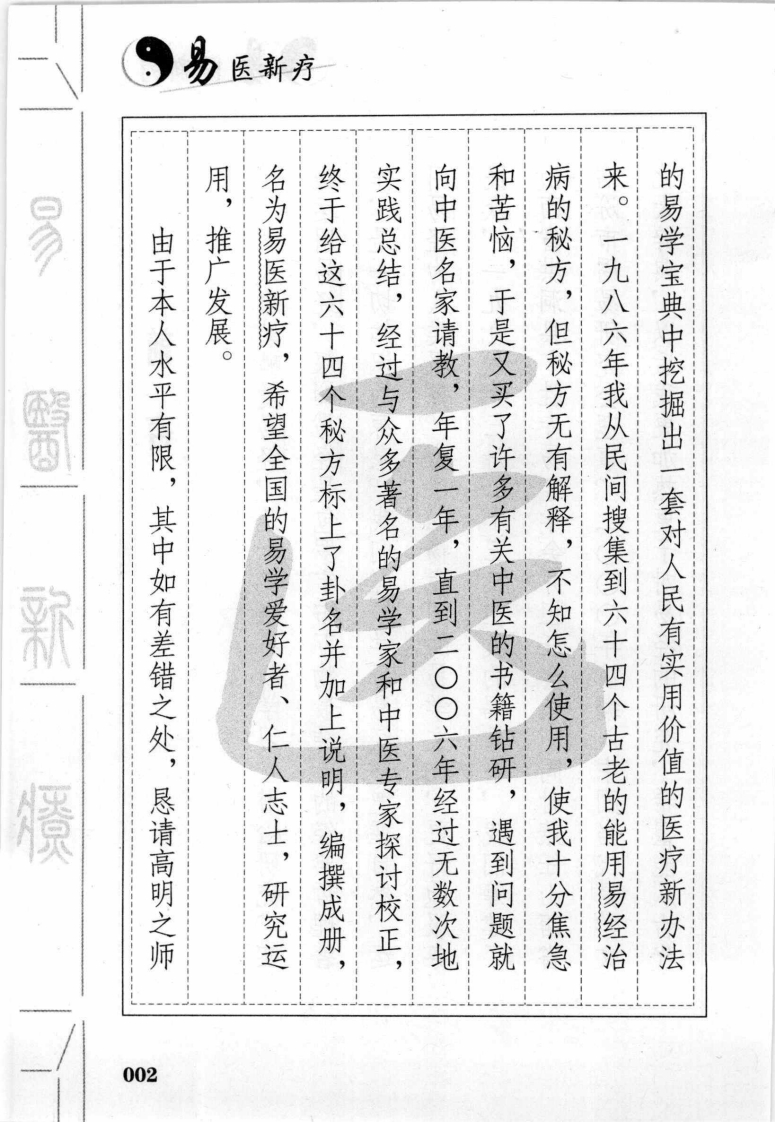 易医新疗
的易学宝典中挖掘出一套对人民有实用价值的医疗新办法
来。一九八六年我从民间搜集到六十四个古老的能用易经治
病的秘方，但秘方无有解释，不知怎么使用，使我十分焦急
和苦恼，于是又买了许多有关中医的书籍钻研，遇到问题就
向中医名家请教，年复一年，直到二〇〇六年经过无数次地
实践总结，经过与众多著名的易学家和中医专家探讨校正，
终于给这六十四个秘方标上了卦名并加上说明，编撰成册，
名为易医新疗，希望全国的易学爱好者、仁人志士，研究运
用，推广发展。
由于本人水平有限，其中如有差错之处，恳请高明之师
医
易醫新療
002